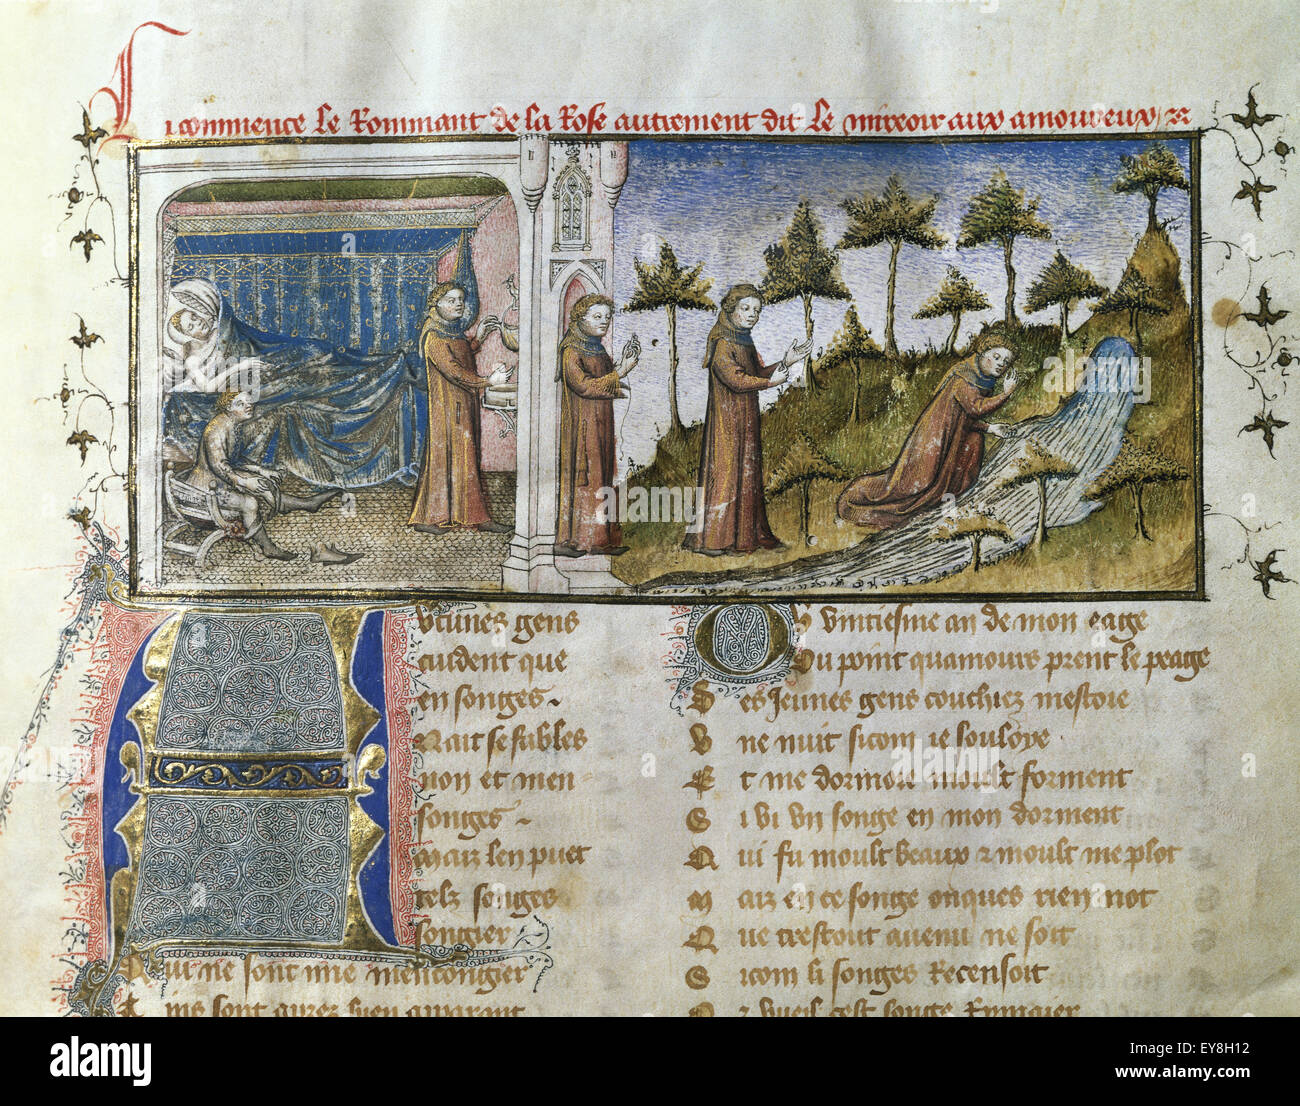 Ci commence le Rommant de la Rose autrement dit le miroir aux amoureux
Aucunes gens
cuident que
en songes
Nait se fables
non et men
songes
Maiz len puet
telz songes
songier
Qui ne sont mie mencongier
Ains sont aprez bien apparant
Ou vintiesme an de mon eage
Ou point quamours prent le peage
Des Jeunes gens couchiez mestoie
Une nuit sicom ie souloye
Et me dormoie moult forment
Si vi vn songe en mon dorment
Qui fu moult beaux & moult me plot
Maiz en ce songe onques rien not
Que trestout auenu ne soit
Sicom li songes Recensoit
Or vueil cest songe Rimaier
alamy
Image ID: EY8H12
www.alamy.com